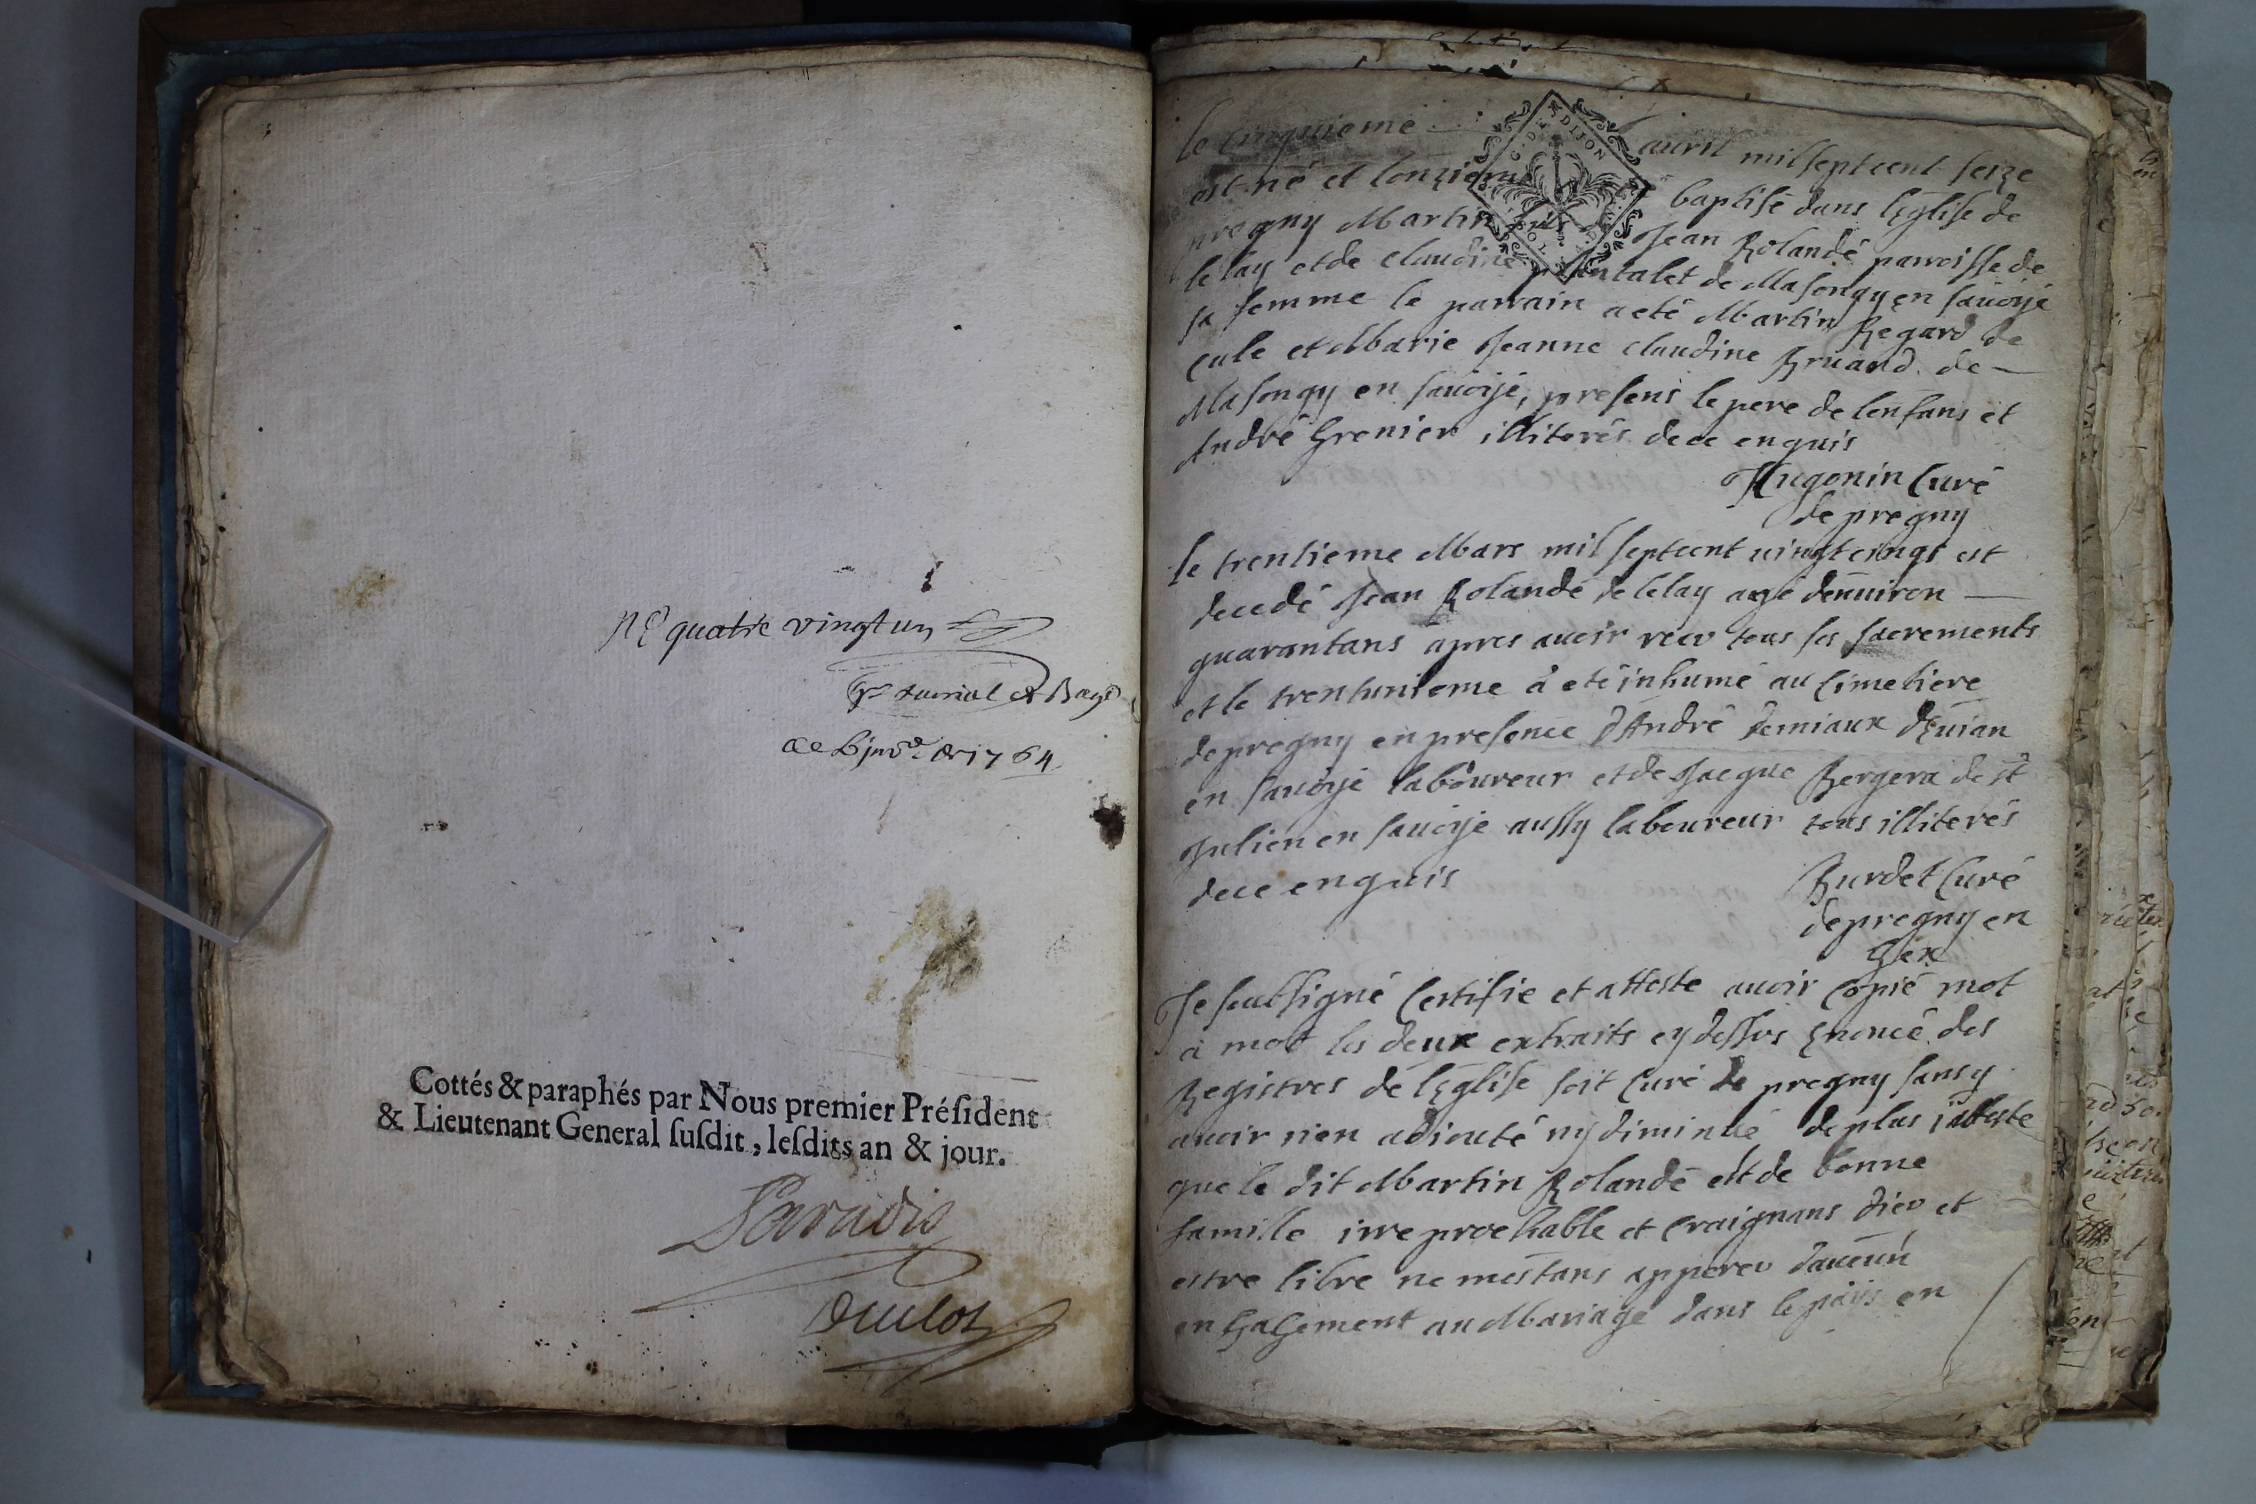 quatre vingt un
de 1764
Cottés & paraphés par Nous premier Préſident
& Lieutenant General ſuſdit, leſdits an & jour.
Paradis
G. DE DIJON
le cinquieme avril mil sept cent seize
est né et lonzieme baptisé dans lEglise de
pregny Martin fils Jean Rolandé parroisse de
le lay et de Claudine de Masongy en sauoÿe
sa femme le parrain a eté Martin Regard de
et Marie Jeanne Claudine Bruand de
Masongy en sauoÿe, presens le pere de lenfans et
André Grenier illiterés de ce enquis
Hugonin Curé
de pregny
le trentieme Mars mil septcent vingt cinqs est
decedé Jean Rolandé de lelay agé denuiron
quarantans apres auoir recu tous ses sacrements
et le trentunieme à eté inhumé au Cimetiere
de pregny en presence d'André Demiaux dEuian
en sauoÿe laboureur et de Jacque Bergera de st
Julien en sauoÿe aussy laboureur tous illiterés
de ce enquis
Burdet Curé
de pregny en
Gex
Je soubsigné Certifie et atteste auoir Copié mot
à mot les deux extraits cy dessus Enoncé des
Registres de lEglise soit Curé de pregny sans y
auoir rien adiouté ny diminué de plus iatteste
que le dit Martin Rolandé est de bonne
famille irreprochable et Craignans dieu et
estre libre ne mestans apperceu daucun
enGaGement au Mariage dans le païs en